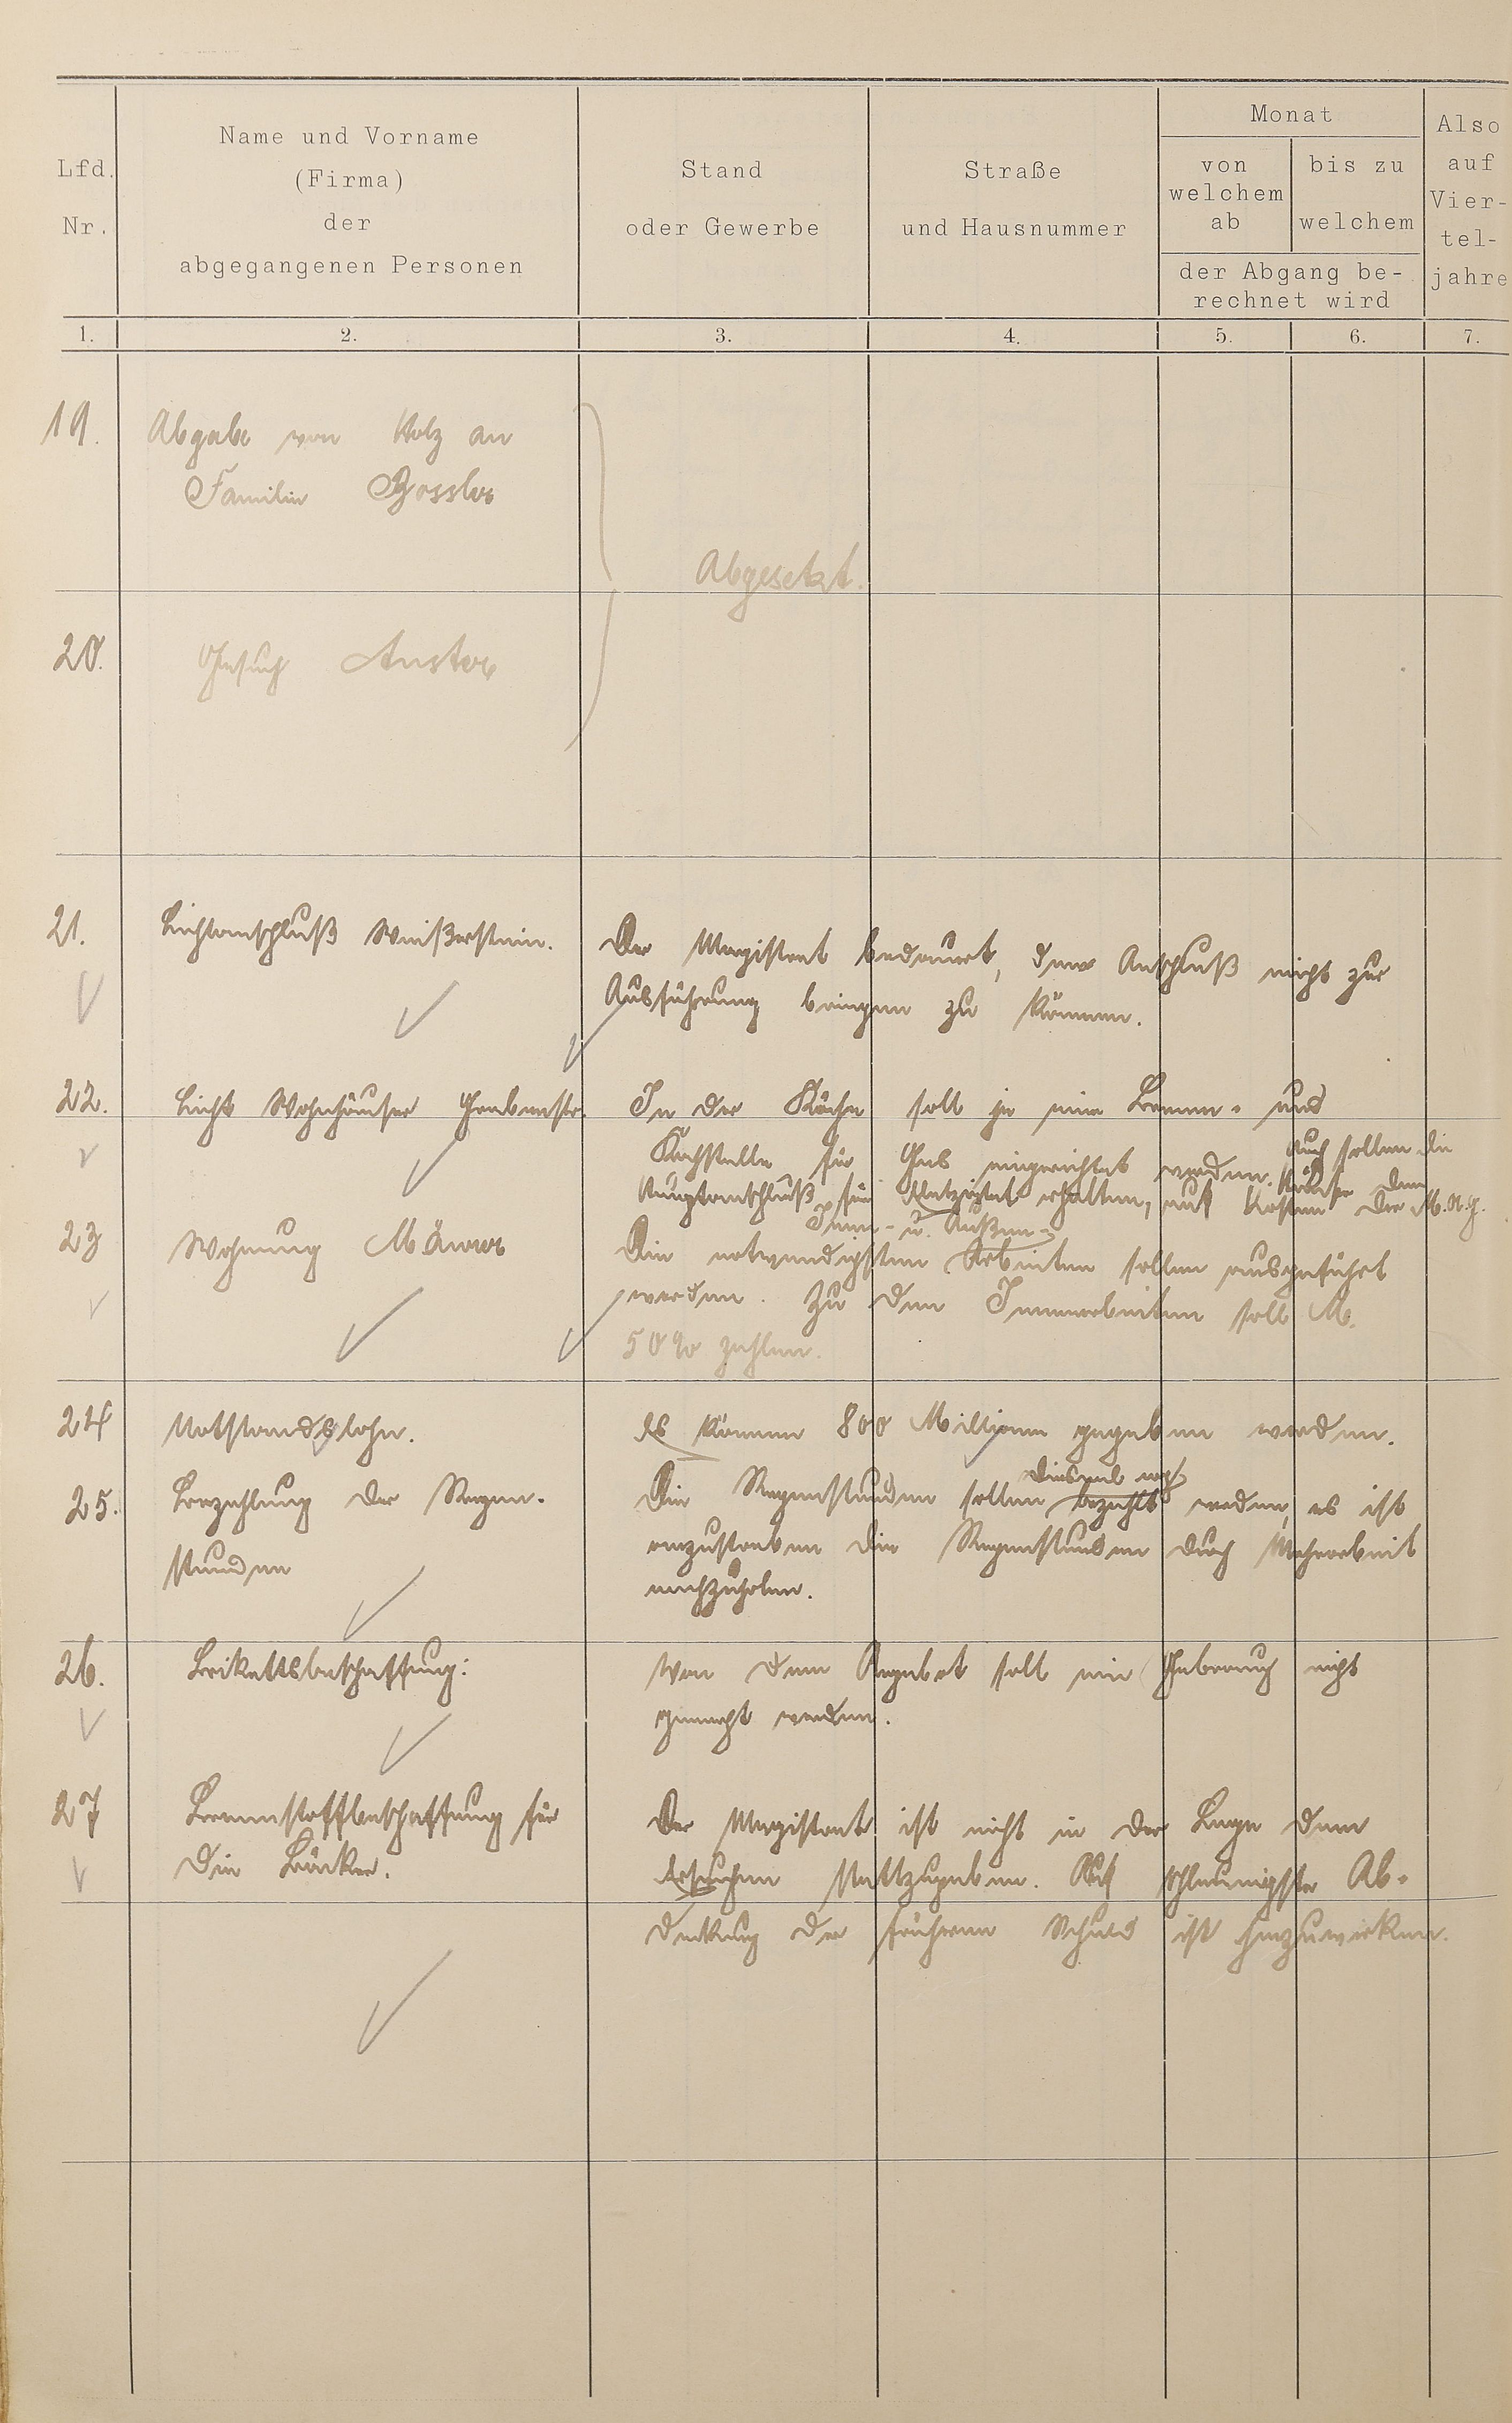 Lfd. Nr.
Name und Vorname
(Firma)
der
abgegangenen Personen
Stand
oder Gewerbe
Straße
und Hausnummer
Monat
von
welchem
ab
bis zu
welchem
der Abgang be-
rechnet wird
Also
auf
Vier-
tel-
jahre
1. 2. 3. 4. 5. 6. 7.
19. Abgabe von Holz an
Familie Bossler
Abgesetzt.
20. Gesuch Auster
21. Lichtanschluß Weißenstein. Der Magistrat bedauert, den Anschluß nicht zur
Ausführung bringen zu können.
22. Licht Wohnhäuser In der Küche soll je eine Brenn- und
Kochstelle für Gas eingerichtet werden. Auch sollen die
Hauptanschluß für erhalten, auf Kosten der
Innen- u. Außen-
23 Wohnung Die notwendigsten Arbeiten sollen ausgeführt
werden. Zu den Innenarbeiten soll M.
50% zahlen.
24 Notstandslohn. Es können 800 Millionen gegeben werden.
diesmal noch
25. Bezahlung der Regen- Die Regenstunden sollen bezahlt werden, es ist
stunden anzustreben die Regenstunden durch Mehrarbeit
nachzuholen.
26. Brikettsbeschaffung: Von dem Angebot soll ein Gebrauch nicht
gemacht werden.
27 Brennstoffbeschaffung für Der Magistrat ist nicht in der Lage dem
die Bäcker. Ersuchen stattzugeben. Auf schleunigste Ab-
deckung der früheren Schuld ist hinzuwirken.